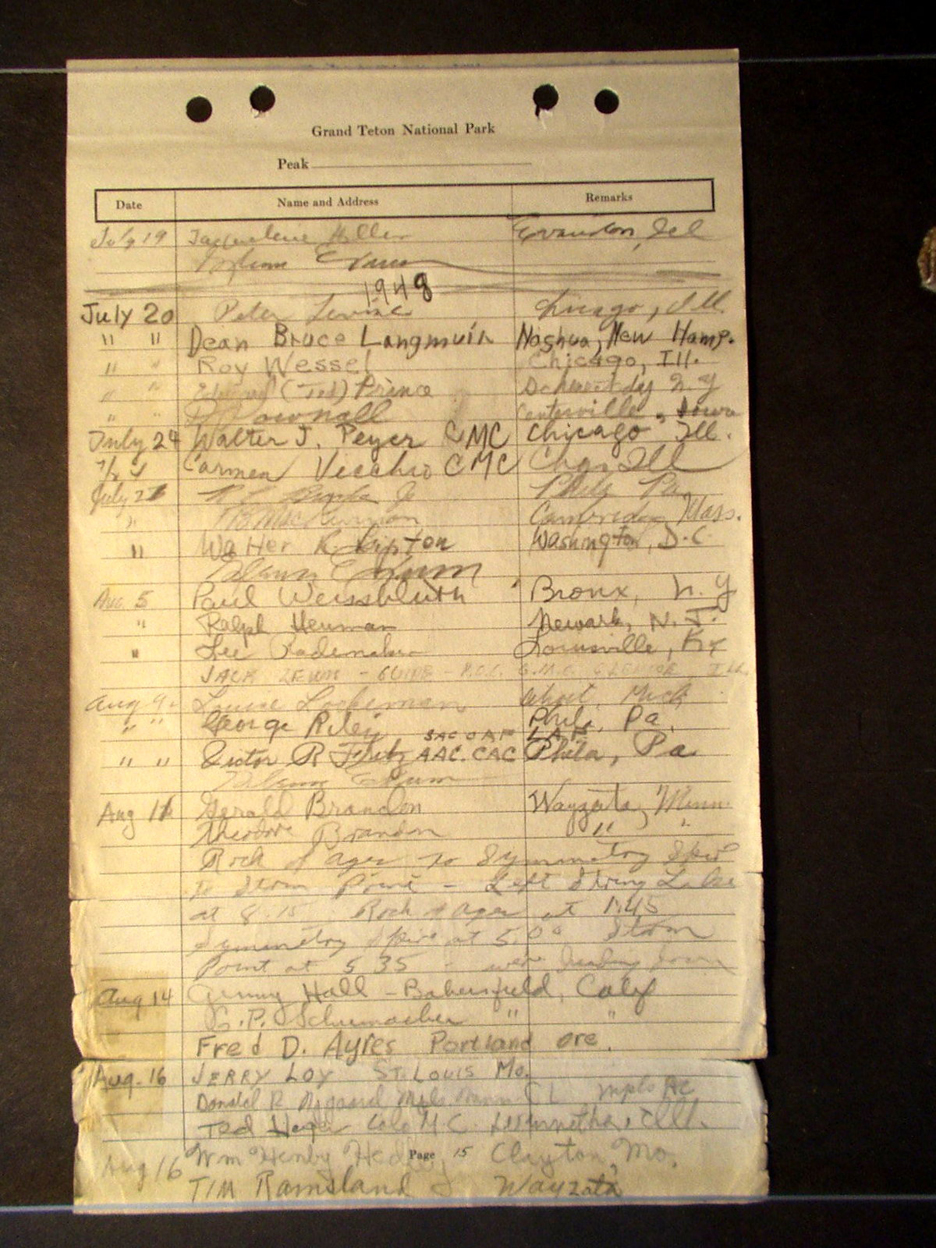 Grand Teton National Park
Peak
Date Name and Address Remarks
July 19 Jacqueline Miller Evanston, Ill
1948
July 20 Peter Levine Chicago, Ill.
" " Dean Bruce Langmuir Nashua, New Hamp.
" " Roy Wessel Chicago, Ill.
" " Edward (Ted) Prince Schenectady N.Y
" " Pownall Centerville, Iowa
July 24 Walter J. Peyer CMC Chicago Ill.
Carmen Vecchio CMC Chgo, Ill
July Phila Pa.
" MacKinnon Cambridge Mass.
" Walter R. Lipton Washington, D.C.
Aug 5 Paul Weissbluth Bronx, N.Y
" Ralph Heuman Newark, N.J.
" Lee Rademaker Louisville, Ky
JACK LEWIS - GUIDE - ILL.
Aug 9 Louise Lockeman Mich
" " George Riley Phil, Pa.
" " Victor R Fritz AAC. CAC Phila, Pa
Aug 11 Gerald Brandon Wayzata, Minn.
Theodore Brandon " "
Rock of ages to Symmetry Spire
to Storm Point - Left String Lake
at 8:15 Rock of ages at 1:45
Symmetry Spire at 5:00 Storm
Point at 5 35 - were heading down
Aug 14 Hall - Bakersfield, Calif
G.P. Schumacher " "
Fred D. Ayres Portland ore.
Aug. 16 JERRY LOY ST. LOUIS Mo.
Donald R. Mpls. Minn
Ted Colo M.C. Winnetka, Ill.
Aug 16 Wm Henry Clayton, Mo.
Page 15
TIM Ramsland Wayzata